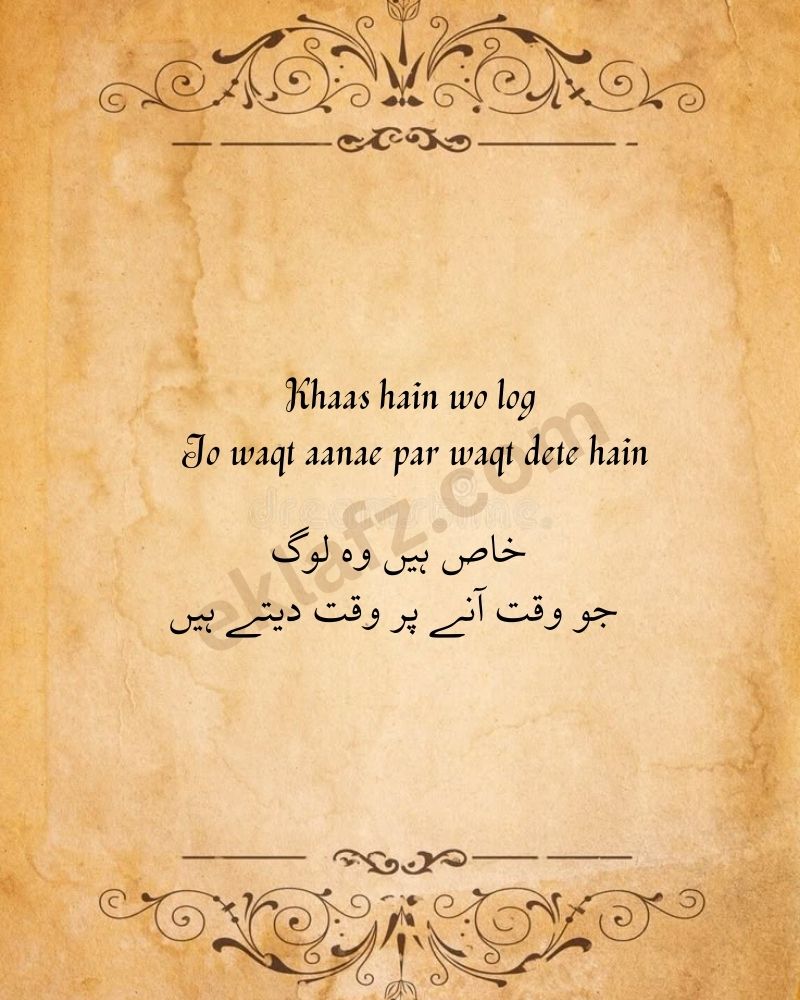 Khaas hain wo log
Jo waqt aanae par waqt dete hain
dreamstime.
eklafz.com
خاص ہیں وہ لوگ
جو وقت آنے پر وقت دیتے ہیں